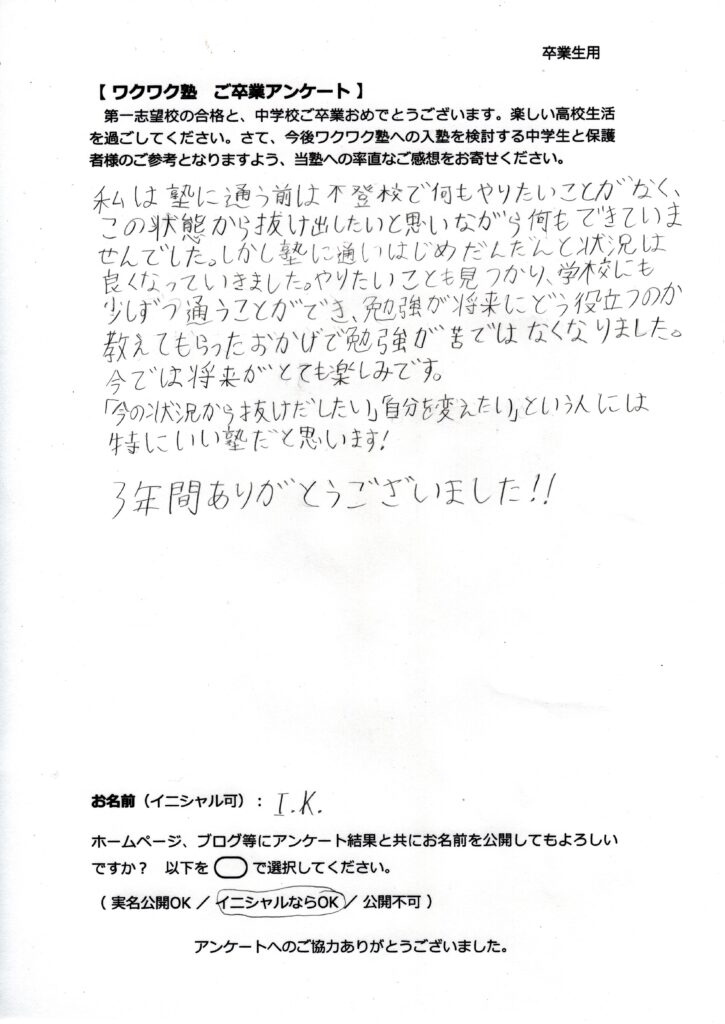 卒業生用
【 ワクワク塾　ご卒業アンケート 】
第一志望校の合格と、中学校ご卒業おめでとうございます。楽しい高校生活
を過ごしてください。さて、今後ワクワク塾への入塾を検討する中学生と保護
者様のご参考となりますよう、当塾への率直なご感想をお寄せください。
私は塾に通う前は不登校で何もやりたいことがなく、
この状態から抜け出したいと思いながら何もできていま
せんでした。しかし塾に通いはじめだんだんと状況は
良くなっていきました。やりたいことも見つかり、学校にも
少しずつ通うことができ、勉強が将来にどう役立つのか
教えてもらったおかげで勉強が苦ではなくなりました。
今では将来がとても楽しみです。
「今の状況から抜けだしたい」「自分を変えたい」という人には
特にいい塾だと思います!
3年間ありがとうございました!!
お名前（イニシャル可）： I.K.
ホームページ、ブログ等にアンケート結果と共にお名前を公開してもよろしい
ですか？　以下を　　で選択してください。
（ 実名公開OK ／ イニシャルならOK ／ 公開不可 ）
アンケートへのご協力ありがとうございました。